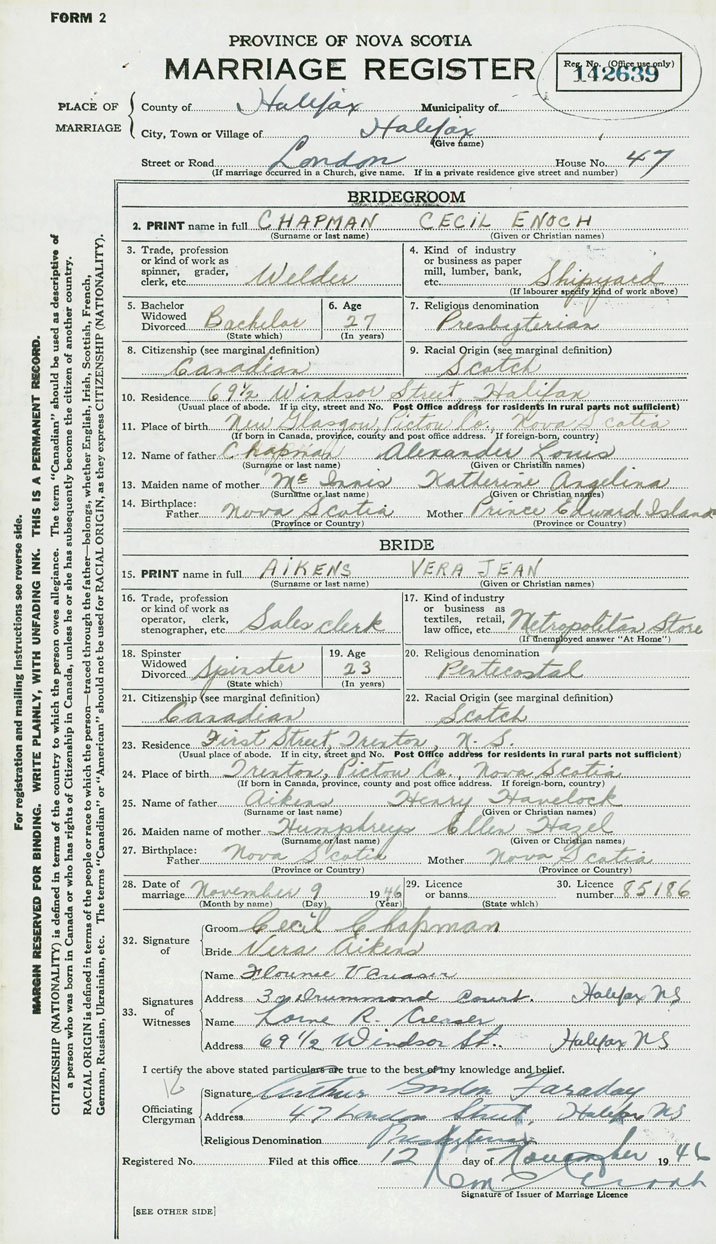 FORM 2
PROVINCE OF NOVA SCOTIA
MARRIAGE REGISTER
Reg. No. (Office use only)
142639
PLACE OF MARRIAGE
County of Halifax Municipality of
City, Town or Village of Halifax
(Give name)
Street or Road London House No. 47
(If marriage occurred in a Church, give name. If in a private residence give street and number)
BRIDEGROOM
2. PRINT name in full CHAPMAN CECIL ENOCH
(Surname or last name) (Given or Christian names)
3. Trade, profession or kind of work as spinner, grader, clerk, etc. Welder
4. Kind of industry or business as paper mill, lumber, bank, etc. Shipyard
(If labourer specify kind of work above)
5. Bachelor Widowed Divorced Bachelor
(State which)
6. Age 27
(In years)
7. Religious denomination
Presbyterian
8. Citizenship (see marginal definition)
Canadian
9. Racial Origin (see marginal definition)
Scotch
10. Residence 69½ Windsor Street, Halifax
(Usual place of abode. If in city, street and No. Post Office address for residents in rural parts not sufficient)
11. Place of birth New Glasgow, Pictou Co., Nova Scotia
(If born in Canada, province, county and post office address. If foreign-born, country)
12. Name of father Chapman Alexander Louis
(Surname or last name) (Given or Christian names)
13. Maiden name of mother Mc Innis Katherine Angelina
(Surname or last name) (Given or Christian names)
14. Birthplace:
Father Nova Scotia Mother Prince Edward Island
(Province or Country) (Province or Country)
BRIDE
15. PRINT name in full AIKENS VERA JEAN
(Surname or last name) (Given or Christian names)
16. Trade, profession or kind of work as operator, clerk, stenographer, etc. Sales clerk
17. Kind of industry or business as textiles, retail, law office, etc. Metropolitan Store
(If unemployed answer "At Home")
18. Spinster Widowed Divorced Spinster
(State which)
19. Age 23
(In years)
20. Religious denomination
Pentecostal
21. Citizenship (see marginal definition)
Canadian
22. Racial Origin (see marginal definition)
Scotch
23. Residence First Street, Trenton, N. S.
(Usual place of abode. If in city, street and No. Post Office address for residents in rural parts not sufficient)
24. Place of birth Trenton, Pictou Co., Nova Scotia
(If born in Canada, province, county and post office address. If foreign-born, country)
25. Name of father Aikens Henry Havelock
(Surname or last name) (Given or Christian names)
26. Maiden name of mother Humphreys Ellen Hazel
(Surname or last name) (Given or Christian names)
27. Birthplace:
Father Nova Scotia Mother Nova Scotia
(Province or Country) (Province or Country)
28. Date of marriage November 9 1946
(Month by name) (Day) (Year)
29. Licence or banns
(State which)
30. Licence number 85186
32. Signature of
Groom Cecil Chapman
Bride Vera Aikens
33. Signatures of Witnesses
Name Florence V
Address Drummond Court. Halifax NS
Name Lorne R.
Address 69 1/2 Windsor St. Halifax NS
I certify the above stated particulars are true to the best of my knowledge and belief.
Officiating Clergyman
Signature Arthur Gordon Faraday
Address 47 London Street, Halifax NS
Religious Denomination Presbyterian
Registered No. Filed at this office 12 day of November 1946
Signature of Issuer of Marriage Licence
[SEE OTHER SIDE]
For registration and mailing instructions see reverse side.
MARGIN RESERVED FOR BINDING. WRITE PLAINLY, WITH UNFADING INK. THIS IS A PERMANENT RECORD.
CITIZENSHIP (NATIONALITY) is defined in terms of the country to which the person owes allegiance. The term "Canadian" should be used as descriptive of
a person who was born in Canada or who has rights of Citizenship in Canada, unless he or she has subsequently become the citizen of another country.
RACIAL ORIGIN is defined in terms of the people or race to which the person—traced through the father—belongs, whether English, Irish, Scottish, French,
German, Russian, Ukrainian, etc. The terms "Canadian" or "American" should not be used for RACIAL ORIGIN, as they express CITIZENSHIP (NATIONALITY).